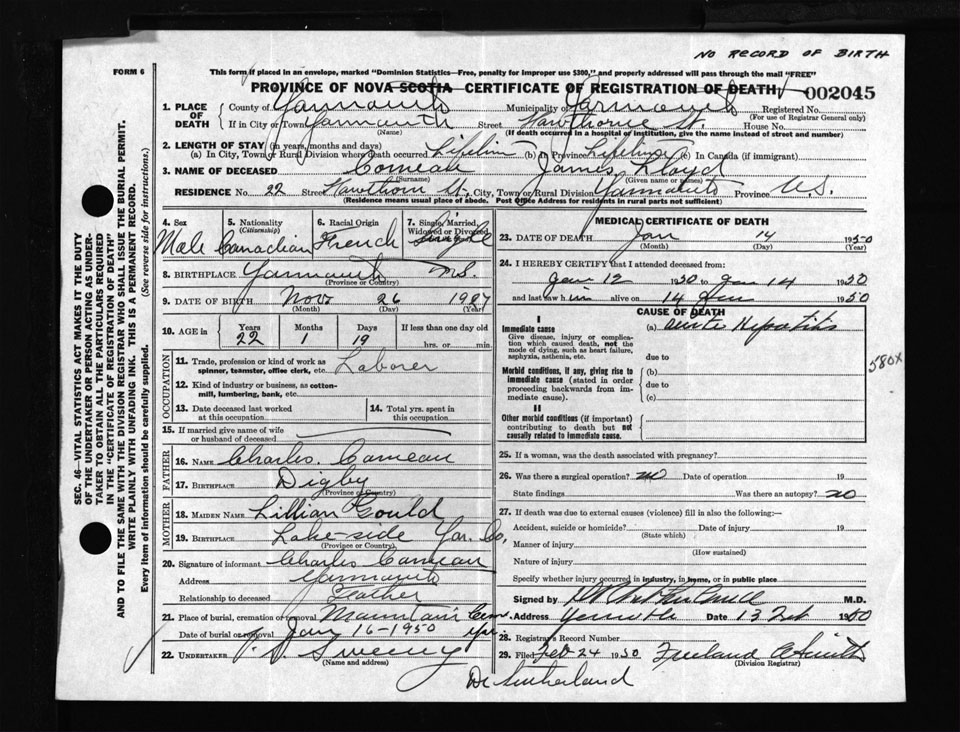 NO RECORD OF BIRTH
FORM 6
This form if placed in an envelope, marked "Dominion Statistics—Free, penalty for improper use $300," and properly addressed will pass through the mail "FREE"
PROVINCE OF NOVA SCOTIA CERTIFICATE OF REGISTRATION OF DEATH
002045
1. PLACE OF DEATH
County of Yarmouth Municipality of Yarmouth Registered No.
(For use of Registrar General only)
If in City or Town Yarmouth Street Hawthorne St. House No.
(Name) (If death occurred in a hospital of institution, give the name instead of street and number)
2. LENGTH OF STAY (in years, months and days)
(a) In City, Town or Rural Division where Death occurred Lifetime (b) In Province Lifetime (c) In Canada (if immigrant)
3. NAME OF DECEASED Comeau James Lloyd
(Surname) (Given name or names)
RESIDENCE No. 22 Street Hawthorn St. City, Town or Rural Division Yarmouth Province N.S.
(Residence means usual place of abode. Post Office Address for residents in rural parts not sufficient)
4. Sex Male
5. Nationality (Citizenship) Canadian
6. Racial Origin French
7. Single, Married, Widowed or Divorced Single
8. BIRTHPLACE Yarmouth N.S.
(Province or Country)
9. DATE OF BIRTH Nov 26 1927
(Month) (Day) (Year)
10. AGE in Years Months Days If less than one day old
22 1 19 hrs. or min.
OCCUPATION
11. Trade, profession or kind of work as spinner, teamster, office clerk, etc. Laborer
12. Kind of industry or business, as cotton-mill, lumbering, bank, etc.
13. Date deceased last worked at this occupation.
14. Total yrs. spent in this occupation.
15. If married give name of wife or husband of deceased
FATHER
16. NAME Charles Comeau
17. BIRTHPLACE Digby
(Province or Country)
MOTHER
18. MAIDEN NAME Lillian Gould
19. BIRTHPLACE Lake-side Yar. Co,
(Province or Country)
20. Signature of informant Charles Comeau
Address Yarmouth
Relationship to deceased Father
21. Place of burial, cremation or removal Mountain Cem. Yar
Date of burial or removal Jan 16-1950
22. UNDERTAKER Sweeny
(Name and address)
MEDICAL CERTIFICATE OF DEATH
23. DATE OF DEATH Jan 14 1950
(Month) (Day) (Year)
24. I HEREBY CERTIFY that I attended deceased from:
Jan 12 1950 to Jan 14 1950
and last saw him alive on 14 Jan 1950
CAUSE OF DEATH
I
Immediate cause (a) Acute Hepatitis
Give disease, injury or complication which caused death, not the mode of dying, such as heart failure, asphyxia, asthenia, etc.
due to
580X
Morbid conditions, if any, giving rise to immediate cause (stated in order proceeding backwards from immediate cause).
(b)
due to
(c)
II
Other morbid conditions (if important) contributing to death but not causally related to immediate cause.
25. If a woman, was the death associated with pregnancy?
26. Was there a surgical operation? no Date of operation 19
State findings Was there an autopsy? no
27. If death was due to external causes (violence) fill in also the following:—
Accident, suicide or homicide? Date of injury 19
(State which)
Manner of injury
(How sustained)
Nature of injury
Specify whether injury occurred in industry, in home, or in public place
Signed by M.D.
Address Date 13 Feb 1950
28. Registrar's Record Number
29. Filed Feb 24 1950 Freeland
(Division Registrar)
Dr Sutherland
SEC. 46—VITAL STATISTICS ACT MAKES IT THE DUTY
OF THE UNDERTAKER OR PERSON ACTING AS UNDER-
TAKER TO OBTAIN ALL THE PARTICULARS REQUIRED
IN THE "CERTIFICATE OF REGISTRATION OF DEATH"
AND TO FILE THE SAME WITH THE DIVISION REGISTRAR WHO SHALL ISSUE THE BURIAL PERMIT.
WRITE PLAINLY WITH UNFADING INK. THIS IS A PERMANENT RECORD.
Every item of information should be carefully supplied. (See reverse side for instructions.)